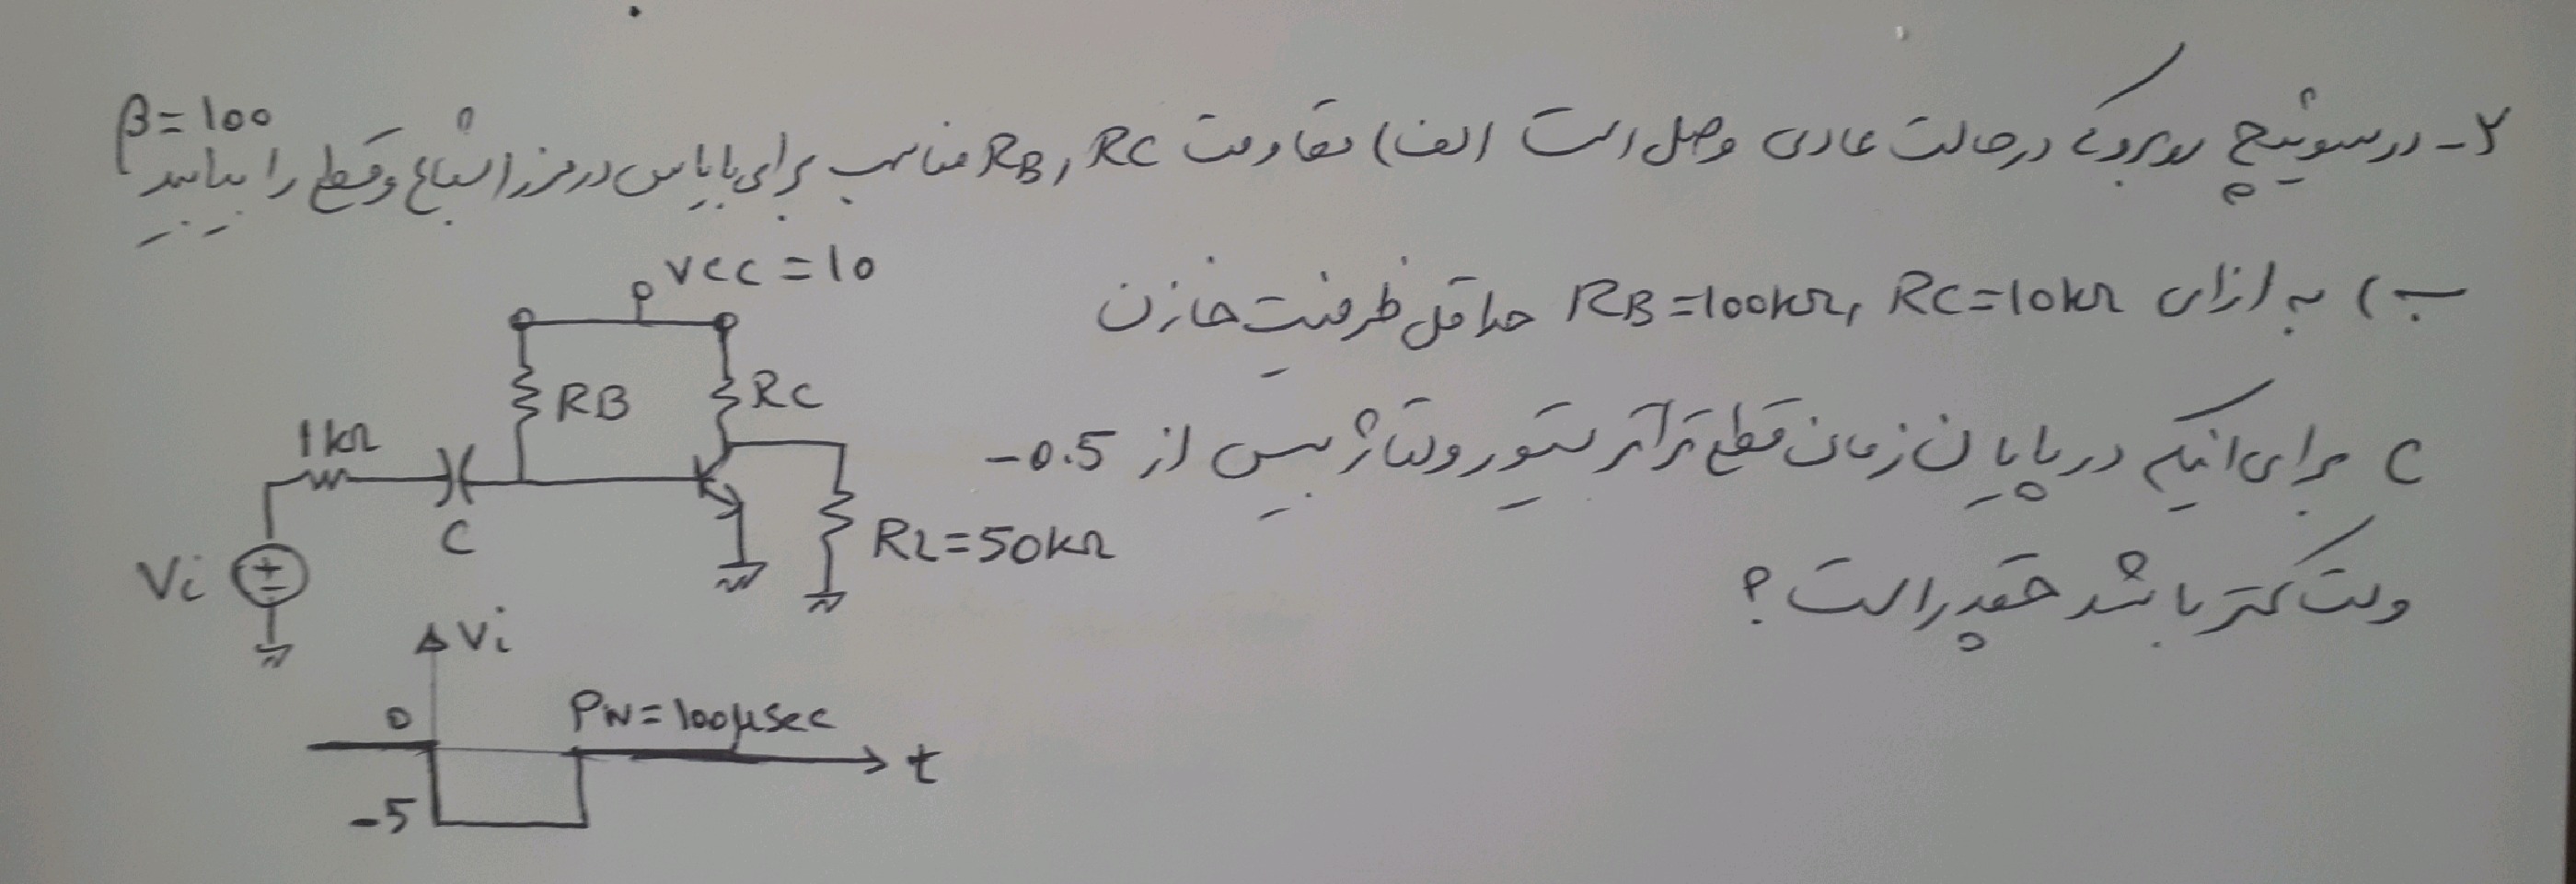 ۲- در سوئیچ روبرو که در حالت عادی وصل است الف) مقاومت RB, RC مناسب برای بایاس در مرز اشباع و قطع را بیابید β=100
ب) به ازای RB=100kΩ, RC=10kΩ حداقل ظرفیت خازن
C برای اینکه در پایان زمان قطع ترانزیستور ولتاژ بیس از -0.5
ولت کمتر باشد چقدر است؟
VCC=10
RB
RC
1kΩ
C
RL=50kΩ
Vi
Vi
0
PW=100μsec
t
-5